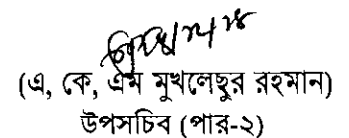 (এ, কে, এম মুখলেছুর রহমান)
উপসচিব (পার-২)